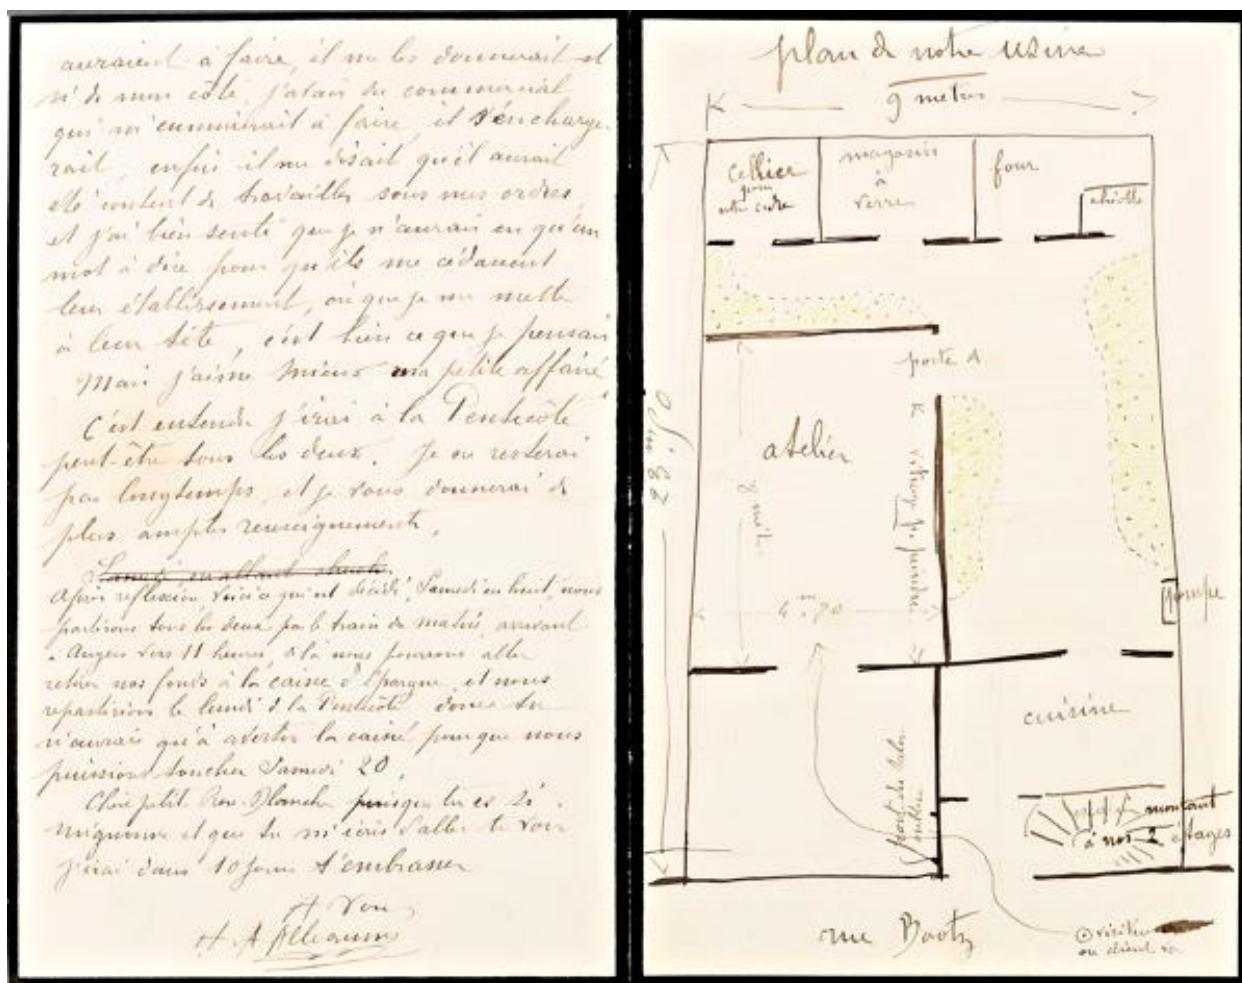 auraient à faire, il me les donnerait et
si de mon côté, j'avais du commercial
qui m'ennuierait à faire, il s'en charge-
rait, enfin il me disait qu'il aurait
été content de travailler sous mes ordres,
et j'ai bien senti que je n'aurais eu qu'un
mot à dire pour qu'ils me cédassent
leur établissement, ou que je me mette
à leur tête, c'est bien ce que je pensais
Mais j'aime mieux ma petite affaire
C'est entendu j'irai à la Pentecôte
peut-être tous les deux. Je ne resterai
pas longtemps, et je vous donnerai de
plus amples renseignements.
Samedi en allant
Après réflexion, voici ce qui est décidé, Samedi en huit, nous
partirons tous les deux par le train du matin, arrivant
à Angers vers 11 heures, de là nous pourrons aller
retirer nos fonds à la caisse d'épargne, et nous
repartirions le lundi de la Pentecôte donc tu
n'aurais qu'à avertir la caisse pour que nous
puissions toucher Samedi 20.
Chère petite Rose Blanche puisque tu es si
mignonne et que tu m'écris d'aller te voir
j'irai dans 10 jours t'embrasser
A Vous
A Alleaume
plan de notre usine
9 metres
cellier
pour
notre cidre
magasin
à
verre
four
porte A
23m,50
atelier
8 mèt.
vitrage
peindre
4m,70
pompe
cuisine
montant
à nos 2 étages
rue Bootz
visiteur
ou client